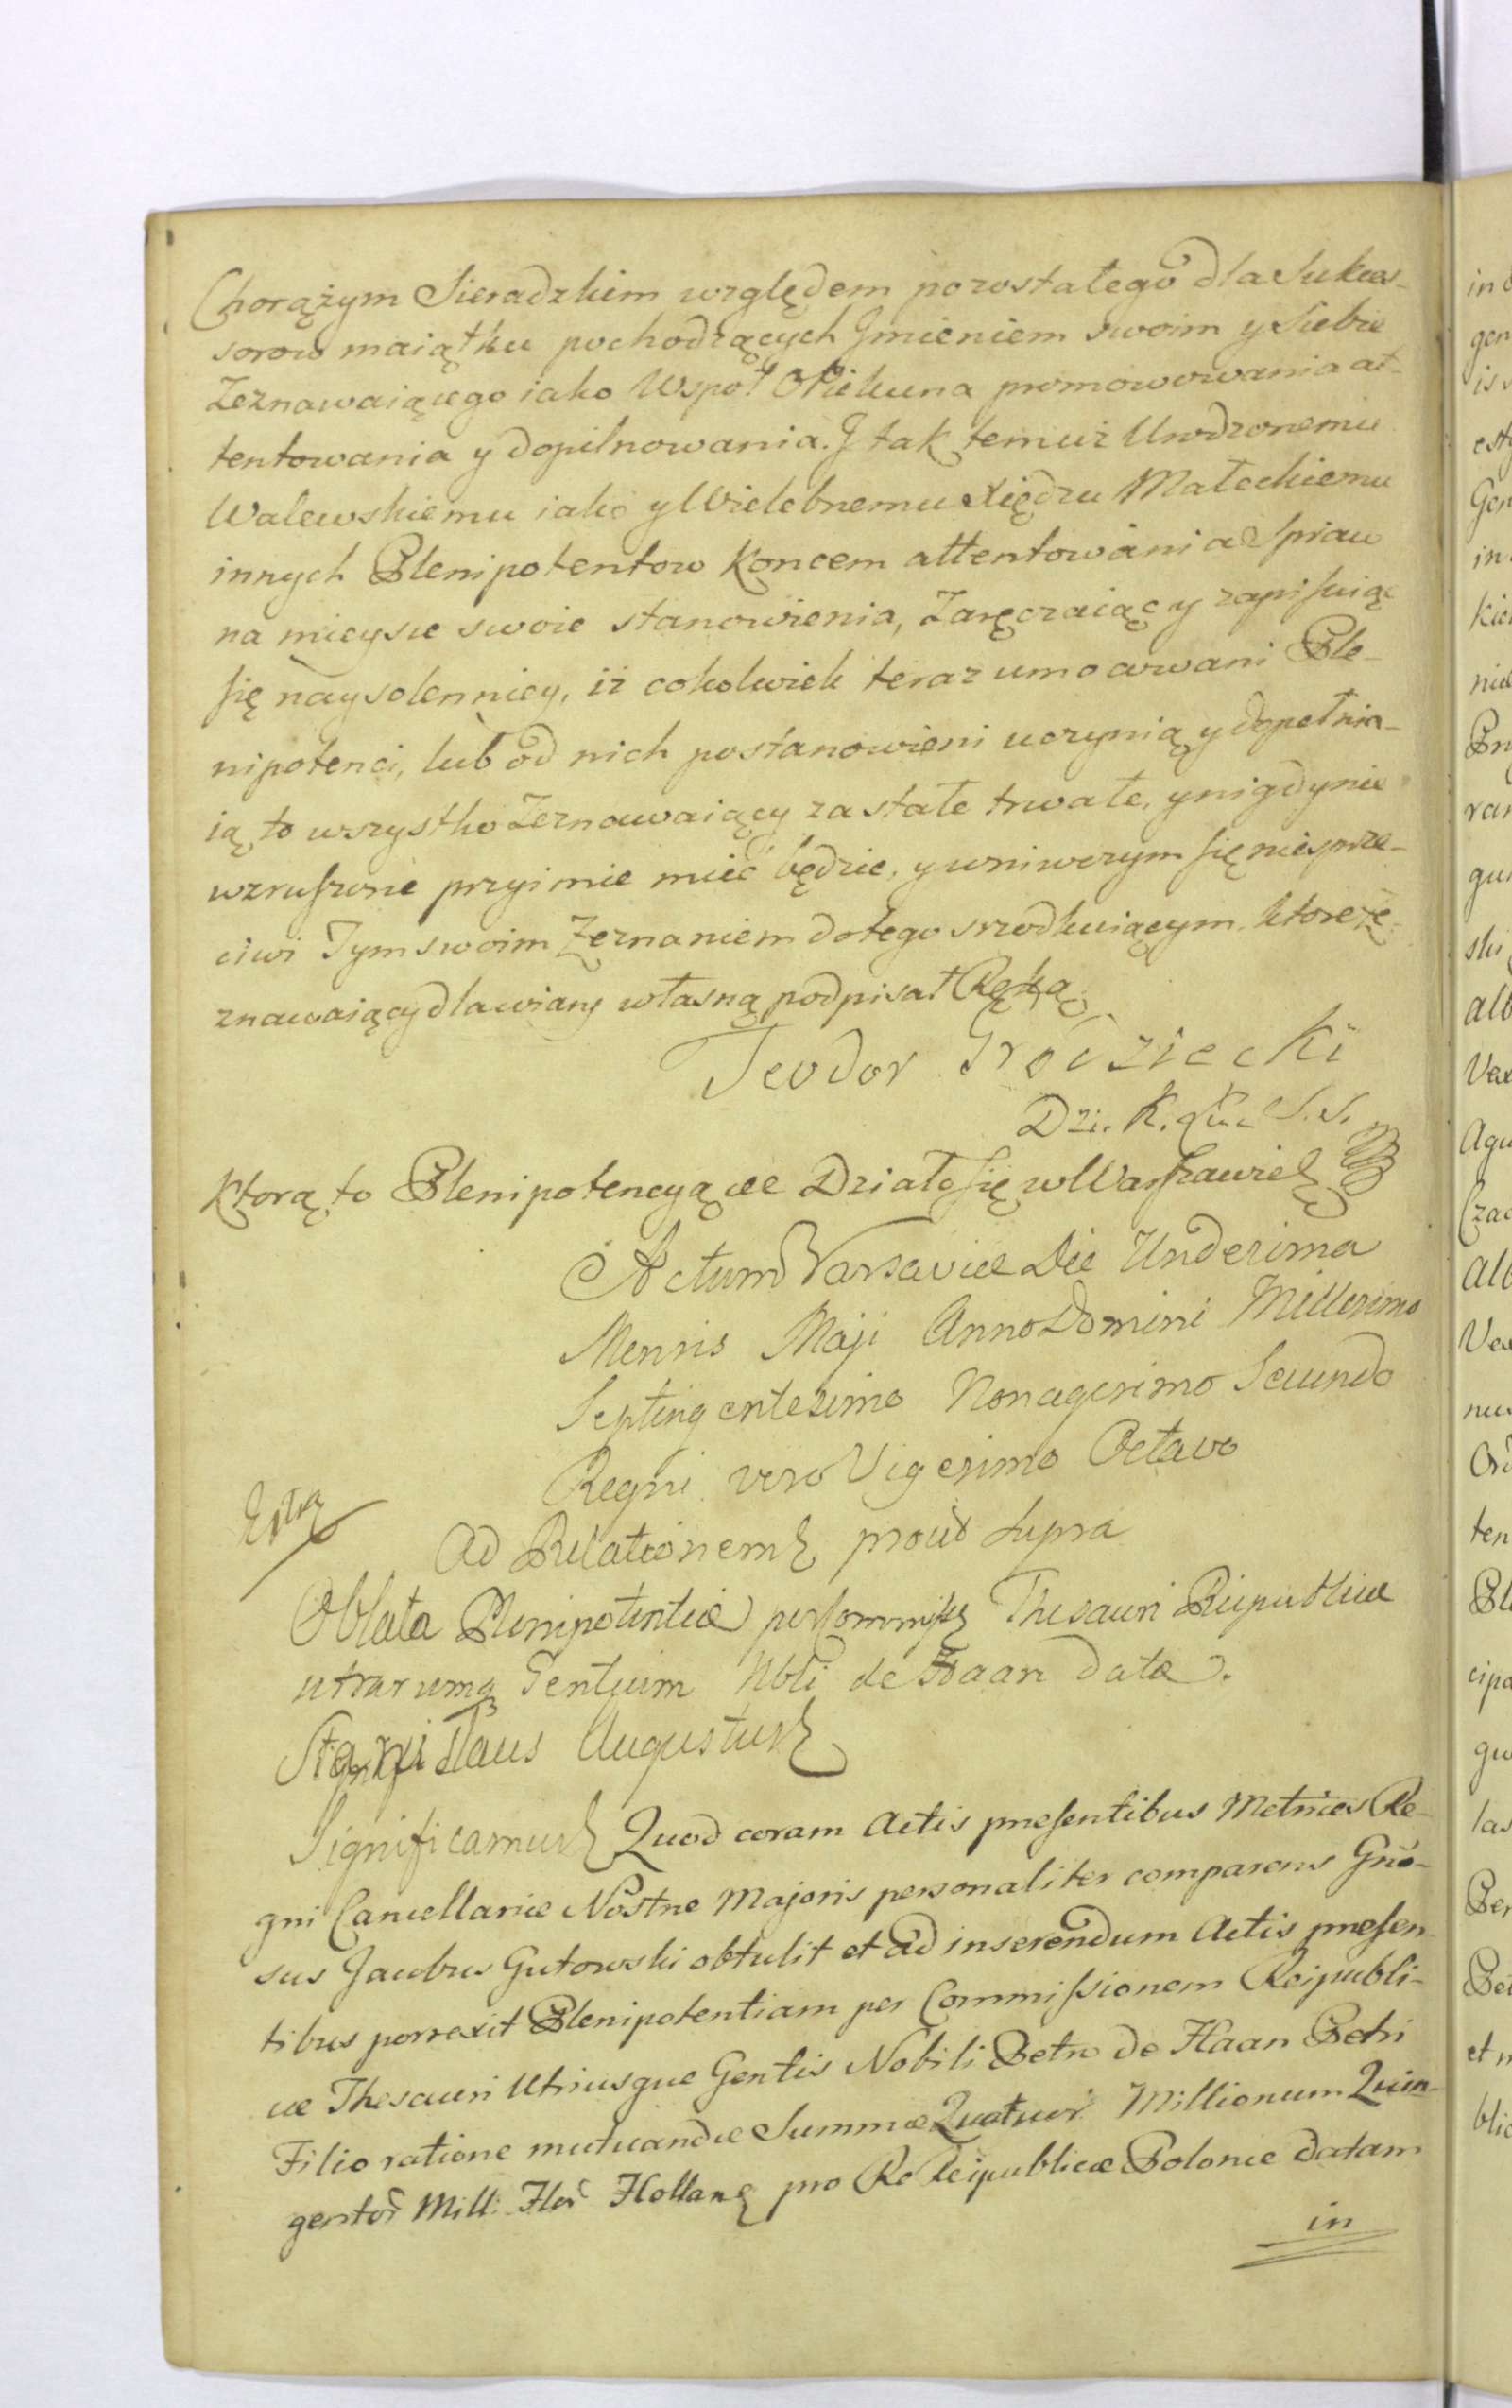 Chorążym Sieradzkim względem pozostałego dla Sukces-
sorow maiątku pochodzących Jmieniem swoim y Siebie
Zeznawaiącego iako Wspoł Opiekuna promowowania at-
tentowania y dopilnowania. J tak temuż Urodzonemu
Walewskiemu iako y Wielebnemu Xiędzu Małeckiemu
innych Plenipotentow Koncem attentowania Spraw
na mieysce swoie stanowienia, Zaręczaiąc y zapisuiąc
się naysolenniey, iż cokolwiek teraz umocowani Ple-
nipotenci, lub od nich postanowieni uczynią y dopełnia-
ią, to wszystko Zeznawaiący za stałe trwałe, y nigdy nie
wzruszone przyimie mieć będzie, y w niwczym się niesprze-
ciwi Tym swoim Zeznaniem do tego srzodkuiącym, ktore Ze-
znawaiący dla wiary własną podpisał Ręką
Teodor Grodziecki
Ktorą to Plenipotencyą ee Działo się w Warszawie
Actum Varsaviæ Die Undecima
Mensis Maji Anno Domini Millesimo
Septingentesimo Nonagesimo Secundo
Regni vero Vigesimo Octavo
Extra
Ad Relationem prout Supra
Oblata Plenipotentiæ per Commiss Thesauri Reipublicæ
utrarumq Gentium Nbli de Haan datæ.
Stanislaus Augustus
Significamus Quod coram Actis præsentibus Metrices Re-
gni Cancellariæ Nostræ Majoris personaliter comparens Gñro-
sus Jacobus Gutowski obtulit et ad inserendum Actis præsen
tibus porrexit Plenipotentiam per Commissionem Reipubli-
cæ Thesauri Utriusque Gentis Nobili Petro de Haan Petri
Filio ratione mutuandæ Summæ Quatuor Millionum Quin-
gentor̃ Mill: Flor̃ Holland pro Re Reipublicæ Polonæ datam
in